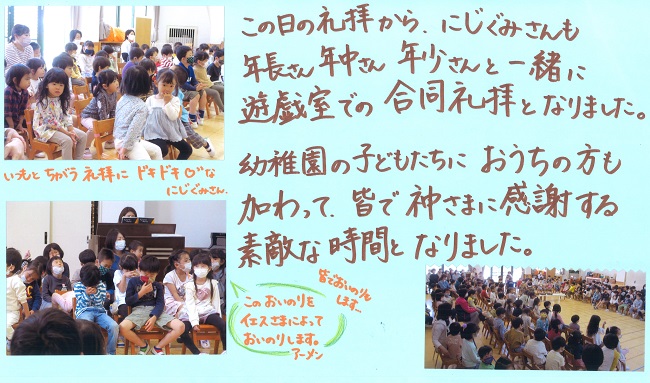 この日の礼拝から、にじぐみさんも
年長さん 年中さん 年少さんと一緒に
遊戯室での 合同礼拝となりました。
幼稚園の子どもたちに おうちの方も
加わって、皆で神さまに感謝する
素敵な時間となりました。
いつもと ちがう 礼拝に ドキドキ♡な
にじぐみさん。
皆でおいのり
します…
このおいのりを
イエスさまによって
おいのりします。
アーメン